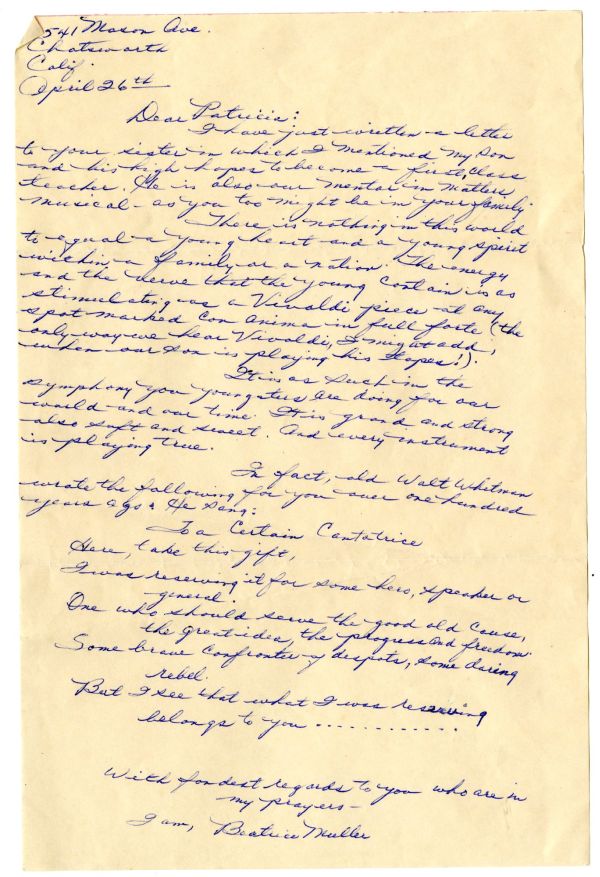 541 Mason Ave.
Chatsworth
Calif.
April 26th
Dear Patricia:
I have just written a letter
to your sister in which I mentioned my son
and his high hopes to become a first class
teacher. He is also our mentor in matters
musical - as you too might be in your family.
There is nothing in this world
to equal a young heart and a young spirit
within a family or a nation. The energy
and the verve that the young contain is as
stimulating as a Vivaldi piece at any
spot marked Con Anima in full forte (the
only way we hear Vivaldi, I might add,
when our son is playing his tapes!).
It is as such in the
symphony you youngsters are doing for our
world and our time. It is grand and strong
also soft and sweet. And every instrument
is playing true.
In fact, old Walt Whitman
wrote the following for you over one hundred
years ago. He sang:
To a Certain Cantatrice
Here, take this gift,
I was reserving it for some hero, speaker or
general.
One who should serve the good old cause,
the great idea, the progress and freedom
Some brave confronter of despots, some daring
rebel.
But I see that what I was reserving
belongs to you ............
With fondest regards to you who are in
my prayers -
I am, Beatrice Muller